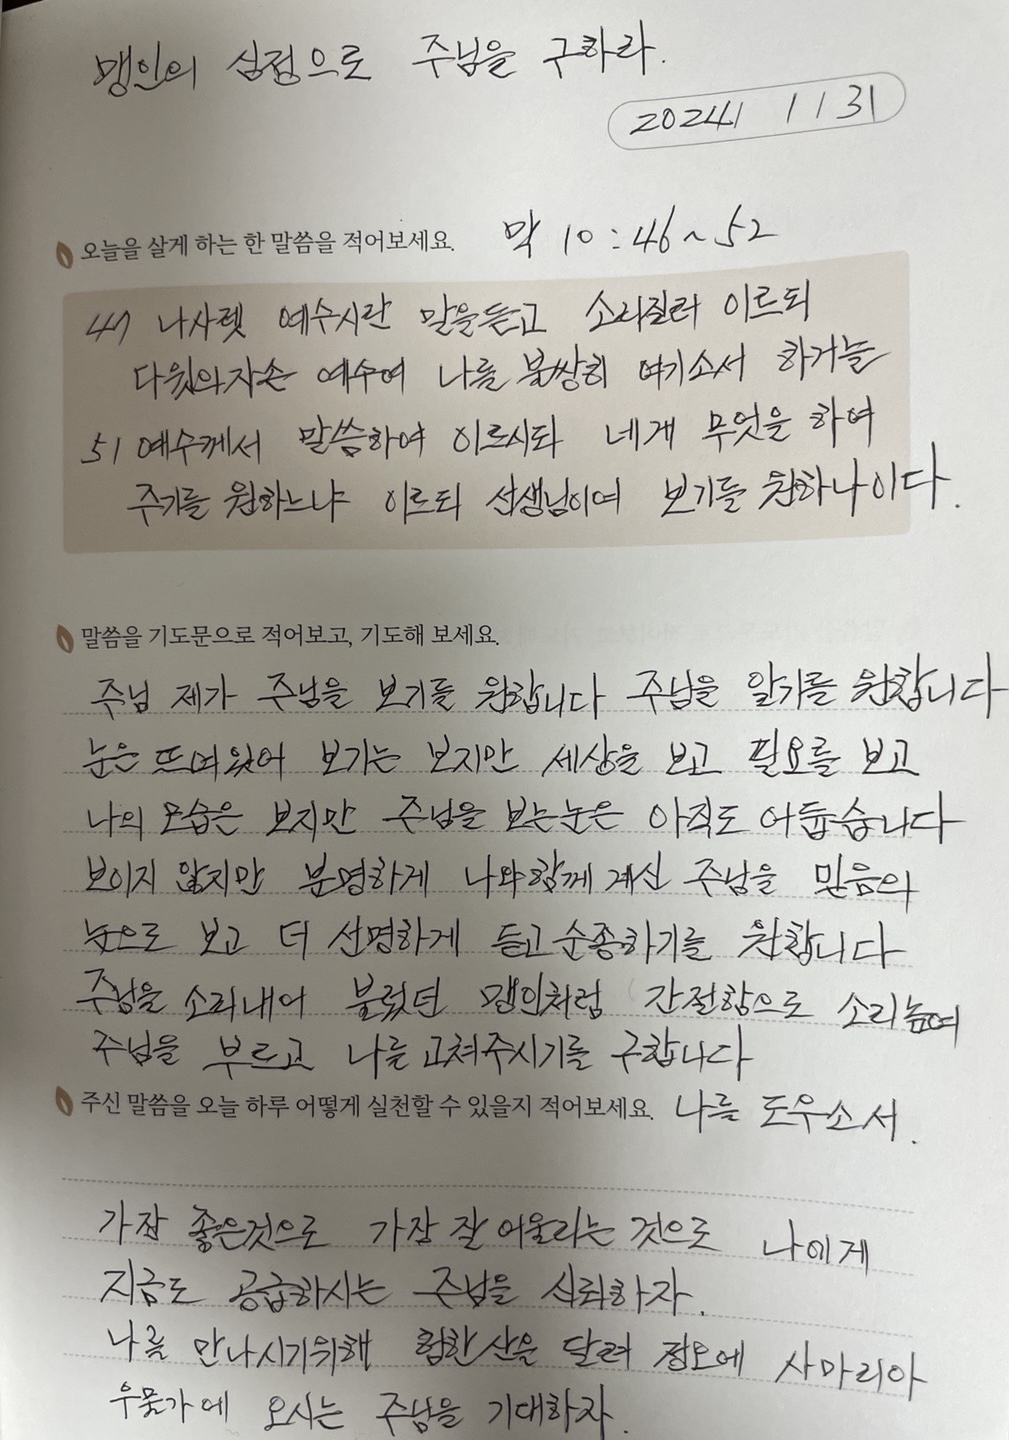 맹인의 심정으로 주님을 구하라.
2024 1 1 31
오늘을 살게 하는 한 말씀을 적어보세요. 막 10:46~52
47 나사렛 예수시란 말을듣고 소리질러 이르되
다윗의자손 예수여 나를 불쌍히 여기소서 하거늘
51 예수께서 말씀하여 이르시되 네게 무엇을 하여
주기를 원하느냐 이르되 선생님이여 보기를 원하나이다.
말씀을 기도문으로 적어보고, 기도해 보세요.
주님 제가 주님을 보기를 원합니다 주님을 알기를 원합니다
눈은 뜨여있어 보기는 보지만 세상을 보고 필요를 보고
나의 모습은 보지만 주님을 보는눈은 아직도 어둡습니다
보이지 않지만 분명하게 나와함께 계신 주님을 믿음의
눈으로 보고 더 선명하게 듣고순종하기를 원합니다
주님을 소리내어 불렀던 맹인처럼 간절함으로 소리높여
주님을 부르고 나를고쳐주시기를 구합니다
주신 말씀을 오늘 하루 어떻게 실천할 수 있을지 적어보세요. 나를 도우소서.
가장 좋은것으로 가장 잘 어울리는 것으로 나에게
지금도 공급하시는 주님을 신뢰하자.
나를 만나시기위해 험한산을 달려 정오에 사마리아
우물가에 오시는 주님을 기대하자.